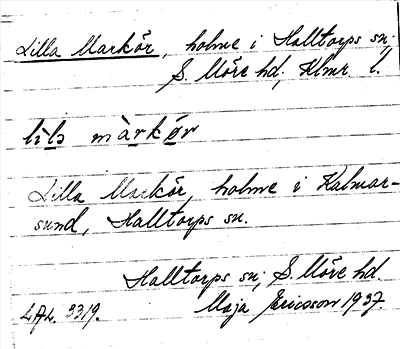 Lilla Markör, holme i Halltorps sn;
S. Möre hd; Klmr l.
màrkør
Lilla Markör, holme i Kalmar-
sund, Halltorps sn.
Halltorps sn; S. Möre hd.
Maja Ericsson 1937.
3319.